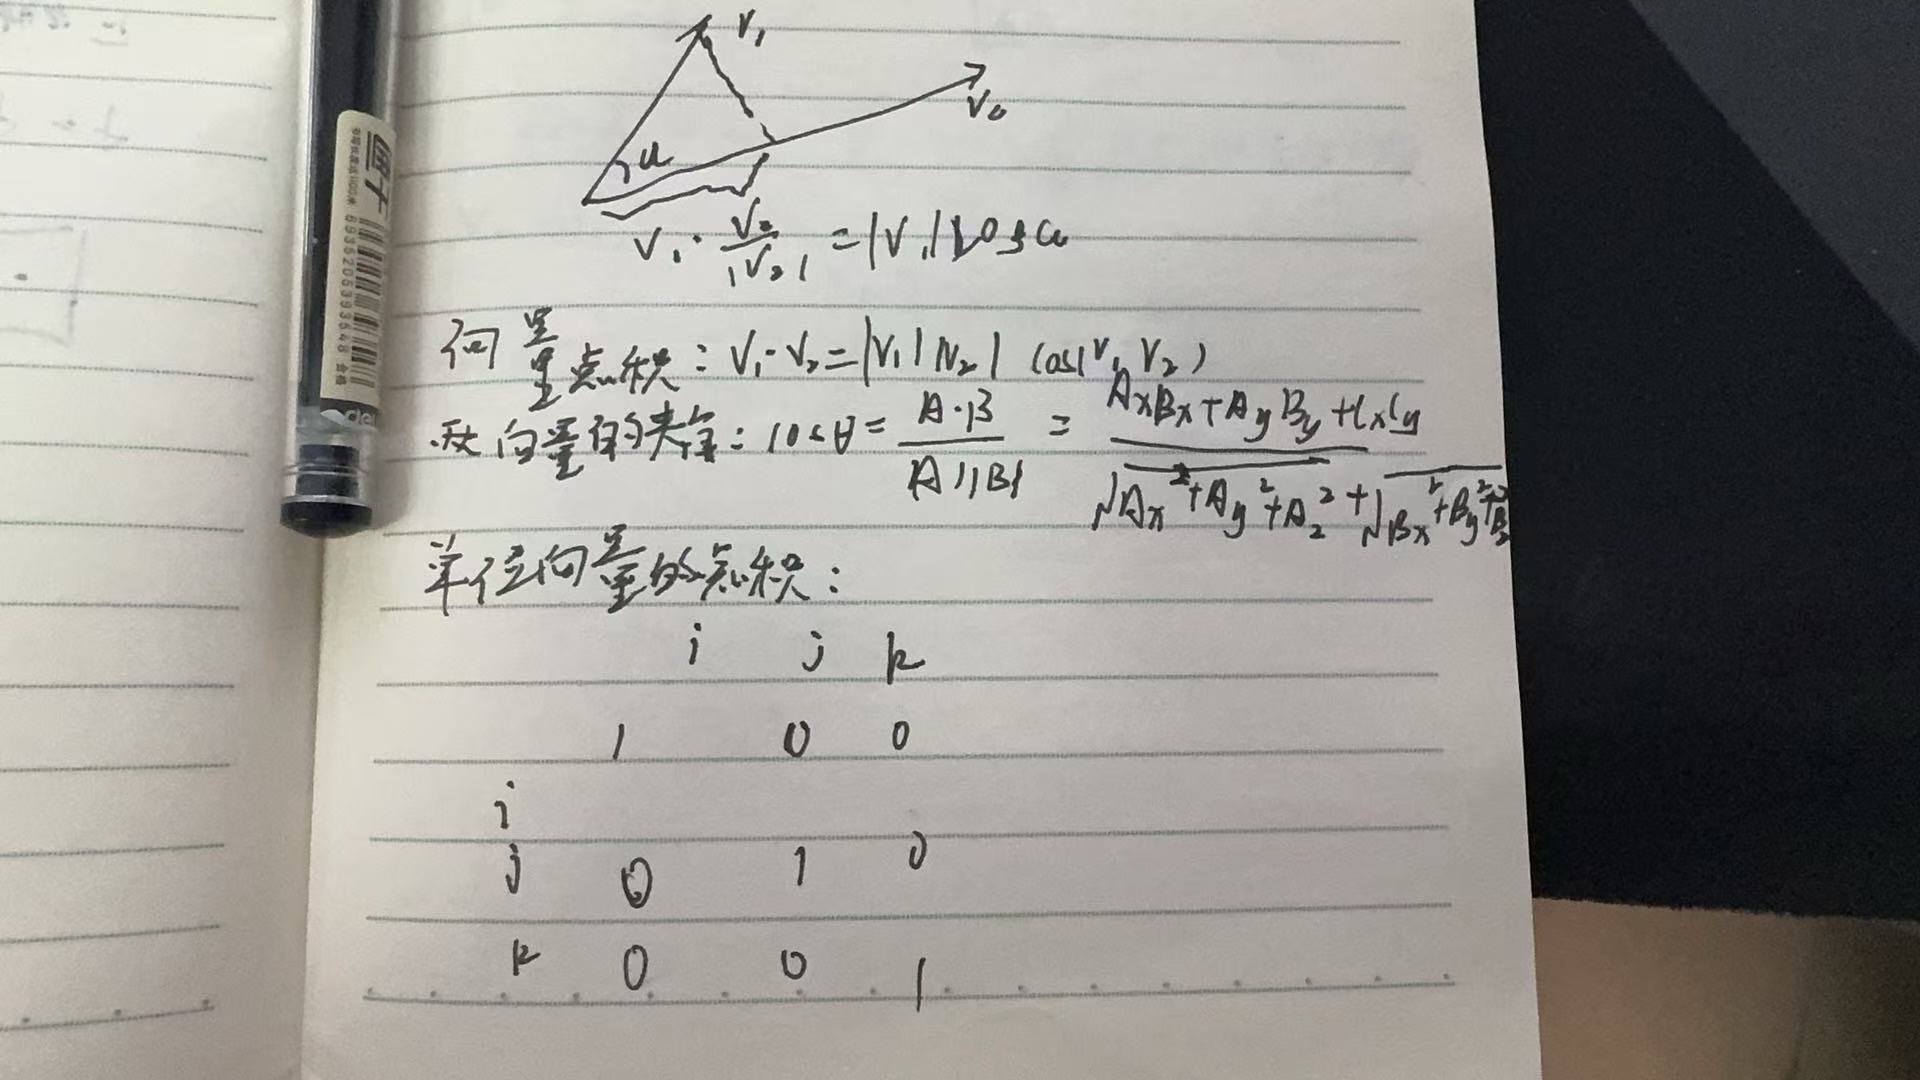 V₁
V₂
a
V₁ · V₂/|V₂| = |V₁| cos a
向量点积: V₁·V₂=|V₁||V₂| cos(V₁ V₂)
两向量的夹角: cosθ = A·B/|A||B| = AxBx+AyBy+CxCy/√Ax²+Ay²+Az² + √Bx²+By²+Bz²
单位向量的点积:
i j k
1 0 0
i
j 0 1 0
k 0 0 1
6935205393648 合格
deli